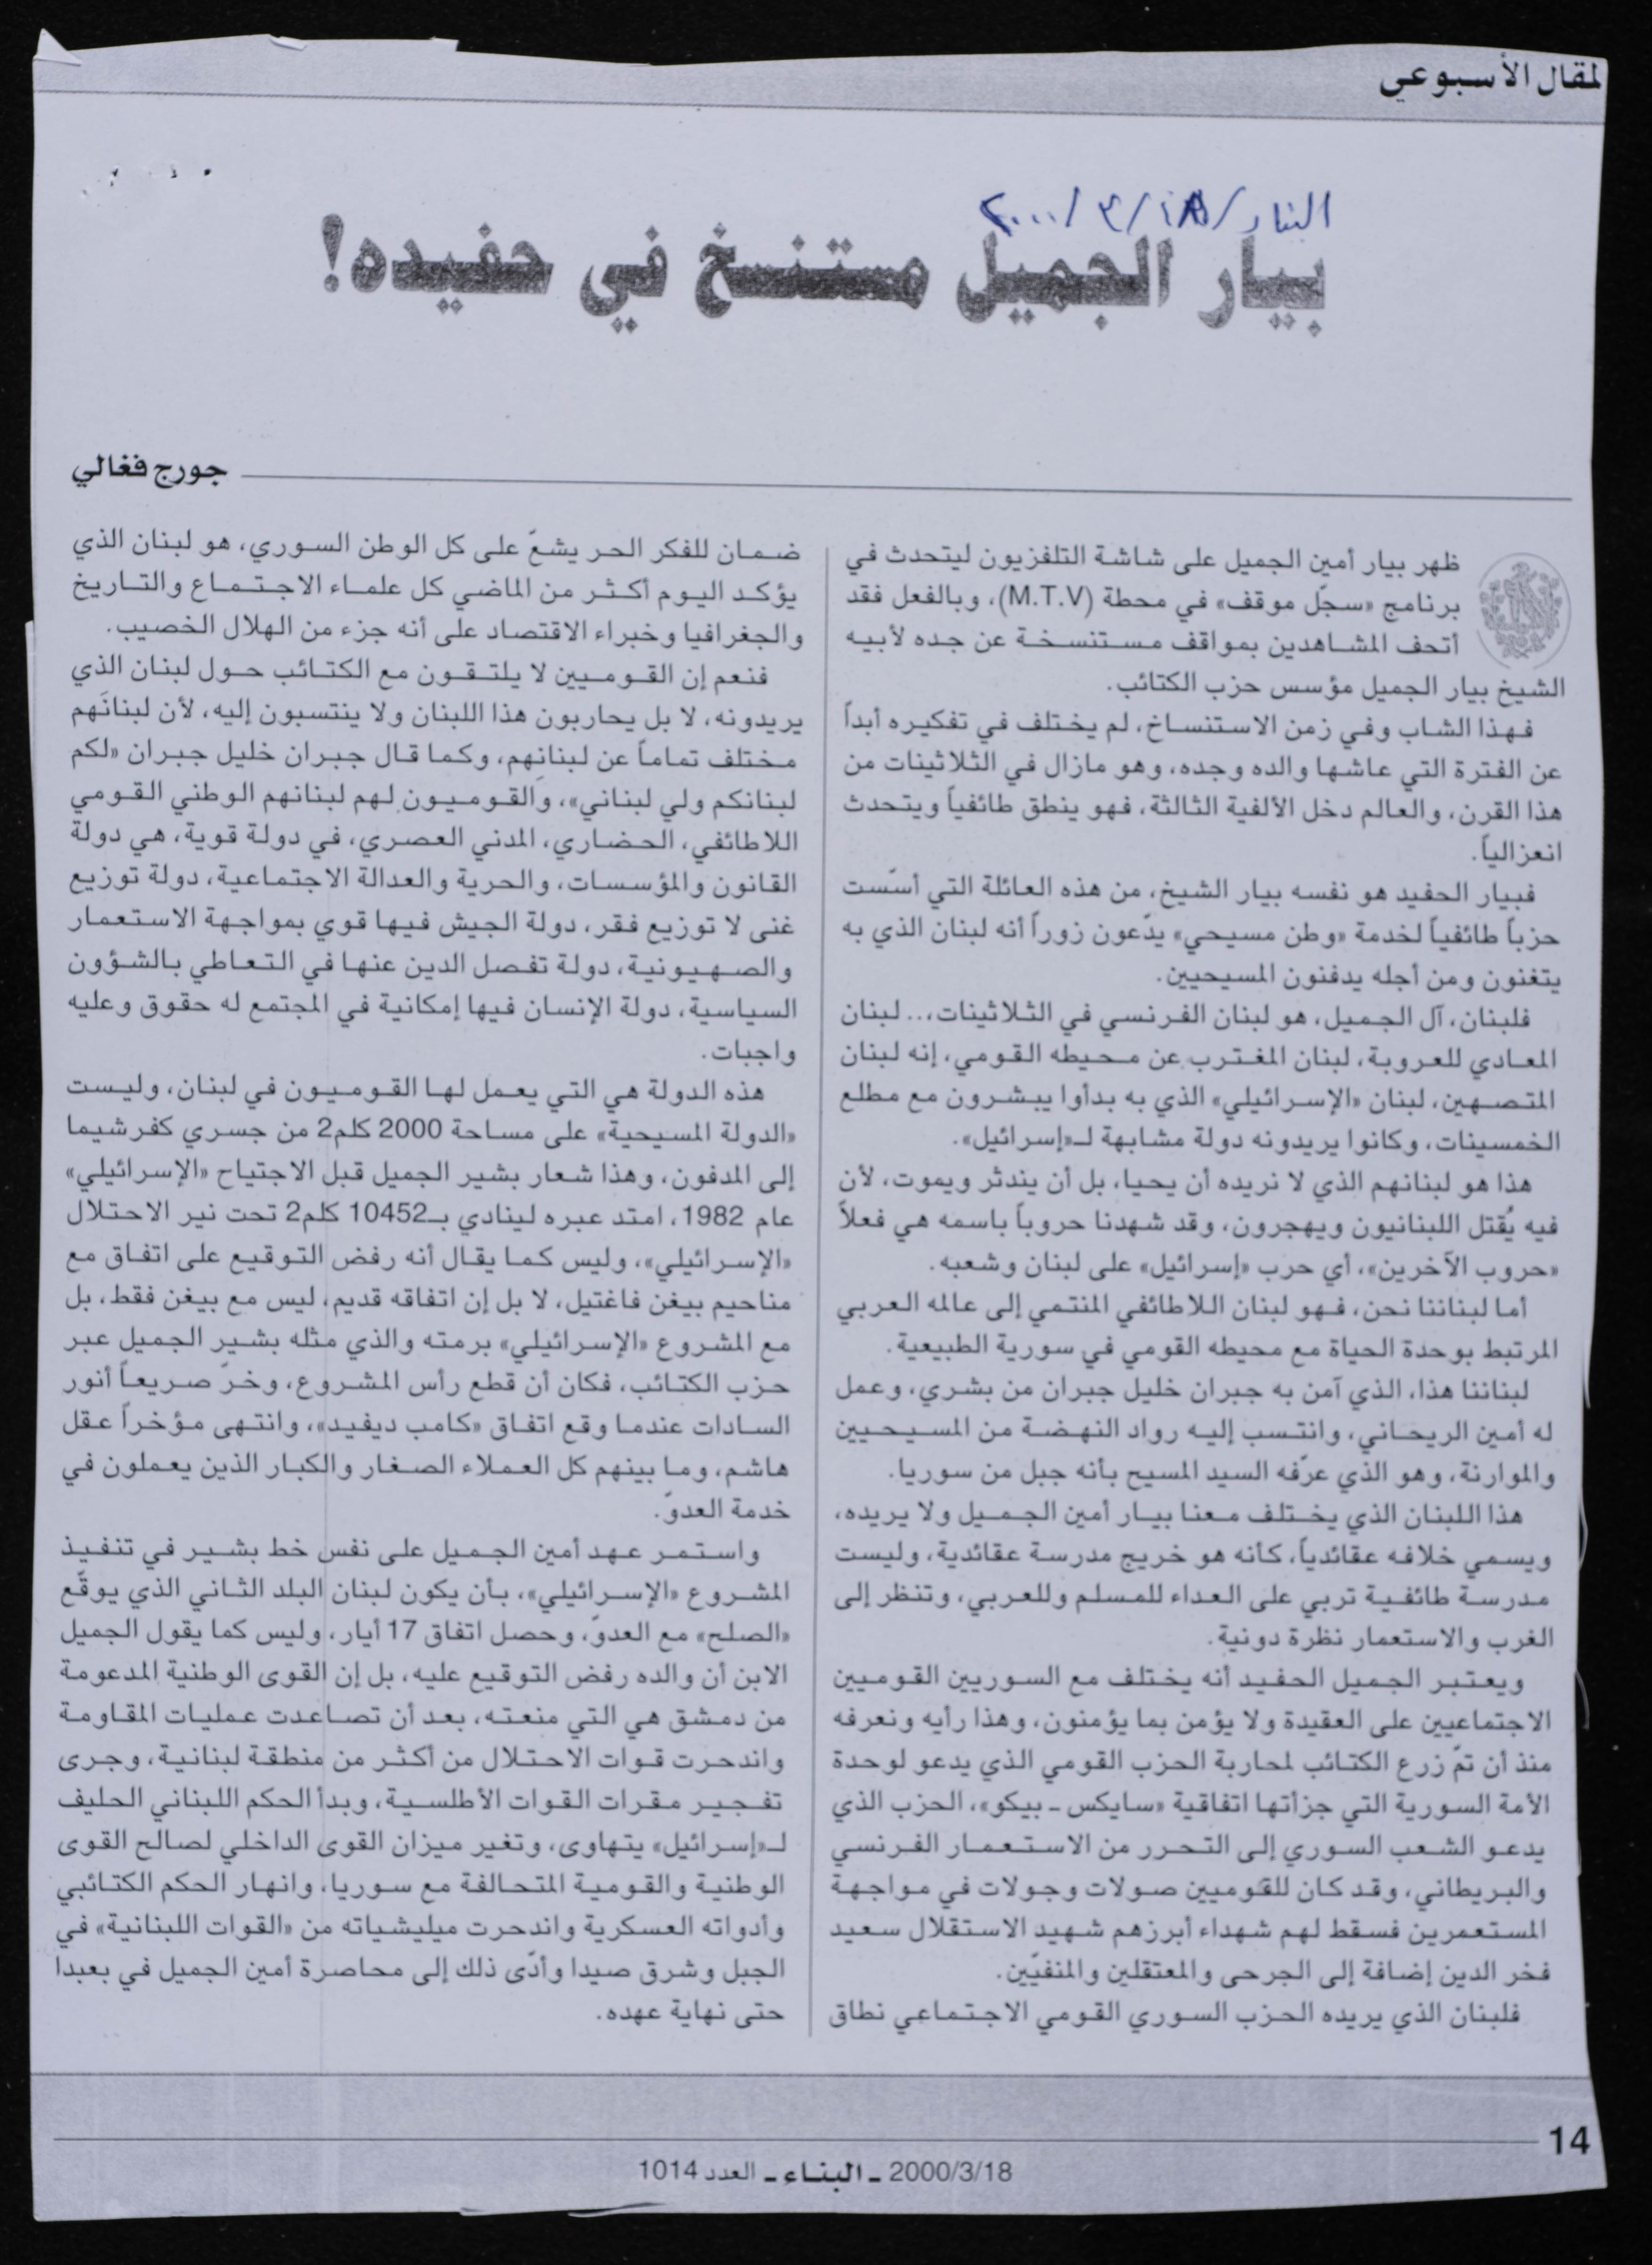 لمقال الأسبوعي
البناء/١٨/٣/٢٠٠٠
بيار الجميل مستنسخ في حفيده!
جورج فغالي
ظهر بيار أمين الجميل على شاشة التلفزيون ليتحدث في
برنامج «سجّل موقف» في محطة (M.T.V)، وبالفعل فقد
أتحف المشاهدين بمواقف مستنسخة عن جده لأبيه
الشيخ بيار الجميل مؤسس حزب الكتائب.
فهذا الشاب وفي زمن الاستنساخ، لم يختلف في تفكيره أبداً
عن الفترة التي عاشها والده وجده، وهو مازال في الثلاثينات من
هذا القرن، والعالم دخل الألفية الثالثة، فهو ينطق طائفياً ويتحدث
انعزالياً.
فبيار الحفيد هو نفسه بيار الشيخ، من هذه العائلة التي أسّست
حزباً طائفياً لخدمة «وطن مسيحي» يدّعون زوراً أنه لبنان الذي به
يتغنون ومن أجله يدفنون المسيحيين.
فلبنان، آل الجميل، هو لبنان الفرنسي في الثلاثينات،.. لبنان
المعادي للعروبة، لبنان المغترب عن محيطه القومي، إنه لبنان
المتصهين، لبنان «الإسرائيلي» الذي به بدأوا يبشرون مع مطلع
الخمسينات، وكانوا يريدونه دولة مشابهة لـ«إسرائيل».
هذا هو لبنانهم الذي لا نريده أن يحيا، بل أن يندثر ويموت، لأن
فيه يُقتل اللبنانيون ويهجرون، وقد شهدنا حروباً باسمه هي فعلاً
«حروب الآخرين»، أي حرب «إسرائيل» على لبنان وشعبه.
أما لبناننا نحن، فهو لبنان اللاطائفي المنتمي إلى عالمه العربي
المرتبط بوحدة الحياة مع محيطه القومي في سورية الطبيعية.
لبناننا هذا، الذي آمن به جبران خليل جبران من بشري، وعمل
له أمين الريحاني، وانتسب إليه رواد النهضة من المسيحيين
والموارنة، وهو الذي عرّفه السيد المسيح بأنه جبل من سوريا.
هذا اللبنان الذي يختلف معنا بيار أمين الجميل ولا يريده،
ويسمي خلافه عقائدياً، كأنه هو خريج مدرسة عقائدية، وليست
مدرسة طائفية تربي على العداء للمسلم وللعربي، وتنظر إلى
الغرب والاستعمار نظرة دونية.
ويعتبر الجميل الحفيد أنه يختلف مع السوريين القوميين
الاجتماعيين على العقيدة ولا يؤمن بما يؤمنون، وهذا رأيه ونعرفه
منذ أن تمّ زرع الكتائب لمحاربة الحزب القومي الذي يدعو لوحدة
الأمة السورية التي جزأتها اتفاقية «سايكس ـ بيكو»، الحزب الذي
يدعو الشعب السوري إلى التحرر من الاستعمار الفرنسي
والبريطاني، وقد كان للقوميين صولات وجولات في مواجهة
المستعمرين فسقط لهم شهداء أبرزهم شهيد الاستقلال سعيد
فخر الدين إضافة إلى الجرحى والمعتقلين والمنفيّين.
فلبنان الذي يريده الحزب السوري القومي الاجتماعي نطاق
ضمان للفكر الحر يشعّ على كل الوطن السوري، هو لبنان الذي
يؤكد اليوم أكثر من الماضي كل علماء الاجتماع والتاريخ
والجغرافيا وخبراء الاقتصاد على أنه جزء من الهلال الخصيب.
فنعم إن القوميين لا يلتقون مع الكتائب حول لبنان الذي
يريدونه، لا بل يحاربون هذا اللبنان ولا ينتسبون إليه، لأن لبنانَهم
مختلف تماماً عن لبنانِهم، وكما قال جبران خليل جبران «لكم
لبنانكم ولي لبناني»، والقوميون لهم لبنانهم الوطني القومي
اللاطائفي، الحضاري، المدني العصري، في دولة قوية، هي دولة
القانون والمؤسسات، والحرية والعدالة الاجتماعية، دولة توزيع
غنى لا توزيع فقر، دولة الجيش فيها قوي بمواجهة الاستعمار
والصهيونية، دولة تفصل الدين عنها في التعاطي بالشؤون
السياسية، دولة الإنسان فيها إمكانية في المجتمع له حقوق وعليه
واجبات.
هذه الدولة هي التي يعمل لها القوميون في لبنان، وليست
«الدولة المسيحية» على مساحة 2000 كلم2 من جسري كفرشيما
إلى المدفون، وهذا شعار بشير الجميل قبل الاجتياح «الإسرائيلي»
عام 1982، امتد عبره لينادي بـ10452 كلم2 تحت نير الاحتلال
«الإسرائيلي»، وليس كما يقال أنه رفض التوقيع على اتفاق مع
مناحيم بيغن فاغتيل، لا بل إن اتفاقه قديم، ليس مع بيغن فقط، بل
مع المشروع «الإسرائيلي» برمته والذي مثله بشير الجميل عبر
حزب الكتائب، فكان أن قطع رأس المشروع، وخرّ صريعاً أنور
السادات عندما وقع اتفاق «كامب ديفيد»، وانتهى مؤخراً عقل
هاشم، وما بينهم كل العملاء الصغار والكبار الذين يعملون في
خدمة العدوّ.
واستمر عهد أمين الجميل على نفس خط بشير في تنفيذ
المشروع «الإسرائيلي»، بأن يكون لبنان البلد الثاني الذي يوقّع
«الصلح» مع العدوّ، وحصل اتفاق 17 أيار، وليس كما يقول الجميل
الابن أن والده رفض التوقيع عليه، بل إن القوى الوطنية المدعومة
من دمشق هي التي منعته، بعد أن تصاعدت عمليات المقاومة
واندحرت قوات الاحتلال من أكثر من منطقة لبنانية، وجرى
تفجير مقرات القوات الأطلسية، وبدأ الحكم اللبناني الحليف
لـ«إسرائيل» يتهاوى، وتغير ميزان القوى الداخلي لصالح القوى
الوطنية والقومية المتحالفة مع سوريا، وانهار الحكم الكتائبي
وأدواته العسكرية واندحرت ميليشياته من «القوات اللبنانية» في
الجبل وشرق صيدا وأدّى ذلك إلى محاصرة أمين الجميل في بعبدا
حتى نهاية عهده.
14
2000/3/18 ـ البناء ـ العدد 1014